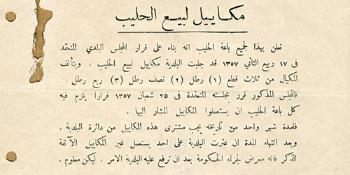 مكاييل لبيع الحليب
نعلن بهذا لجميع باعة الحليب انه بناء على قرار المجلس البلدي المنعقد
في ١٧ ربيع الثاني ١٣٥٧ قد جلبت البلدية مكاييل لبيع الحليب . ويتألف
المكيال من ثلاث قطع (١) رطل (٢) نصف رطل (٣) ربع رطل .
فالمجلس المذكور قرر بجلسته المنعقدة في ٢٥ شعبان ١٣٥٧ قرارا يلزم فيه
كل باعة الحليب ان يستعملوا المكاييل المشار اليها .
فلمدة شهر واحد من تاريخه يجب مشترى هذه المكاييل من دائرة البلدية .
وبعد انتهاء المدة ان عثرت البلدية على احد يستعمل غير المكاييل الآنفة
الذكر فانه معرض لجزاء الحكومة بعد ان ترفع عليه البلدية الامر . ليكن معلوم .